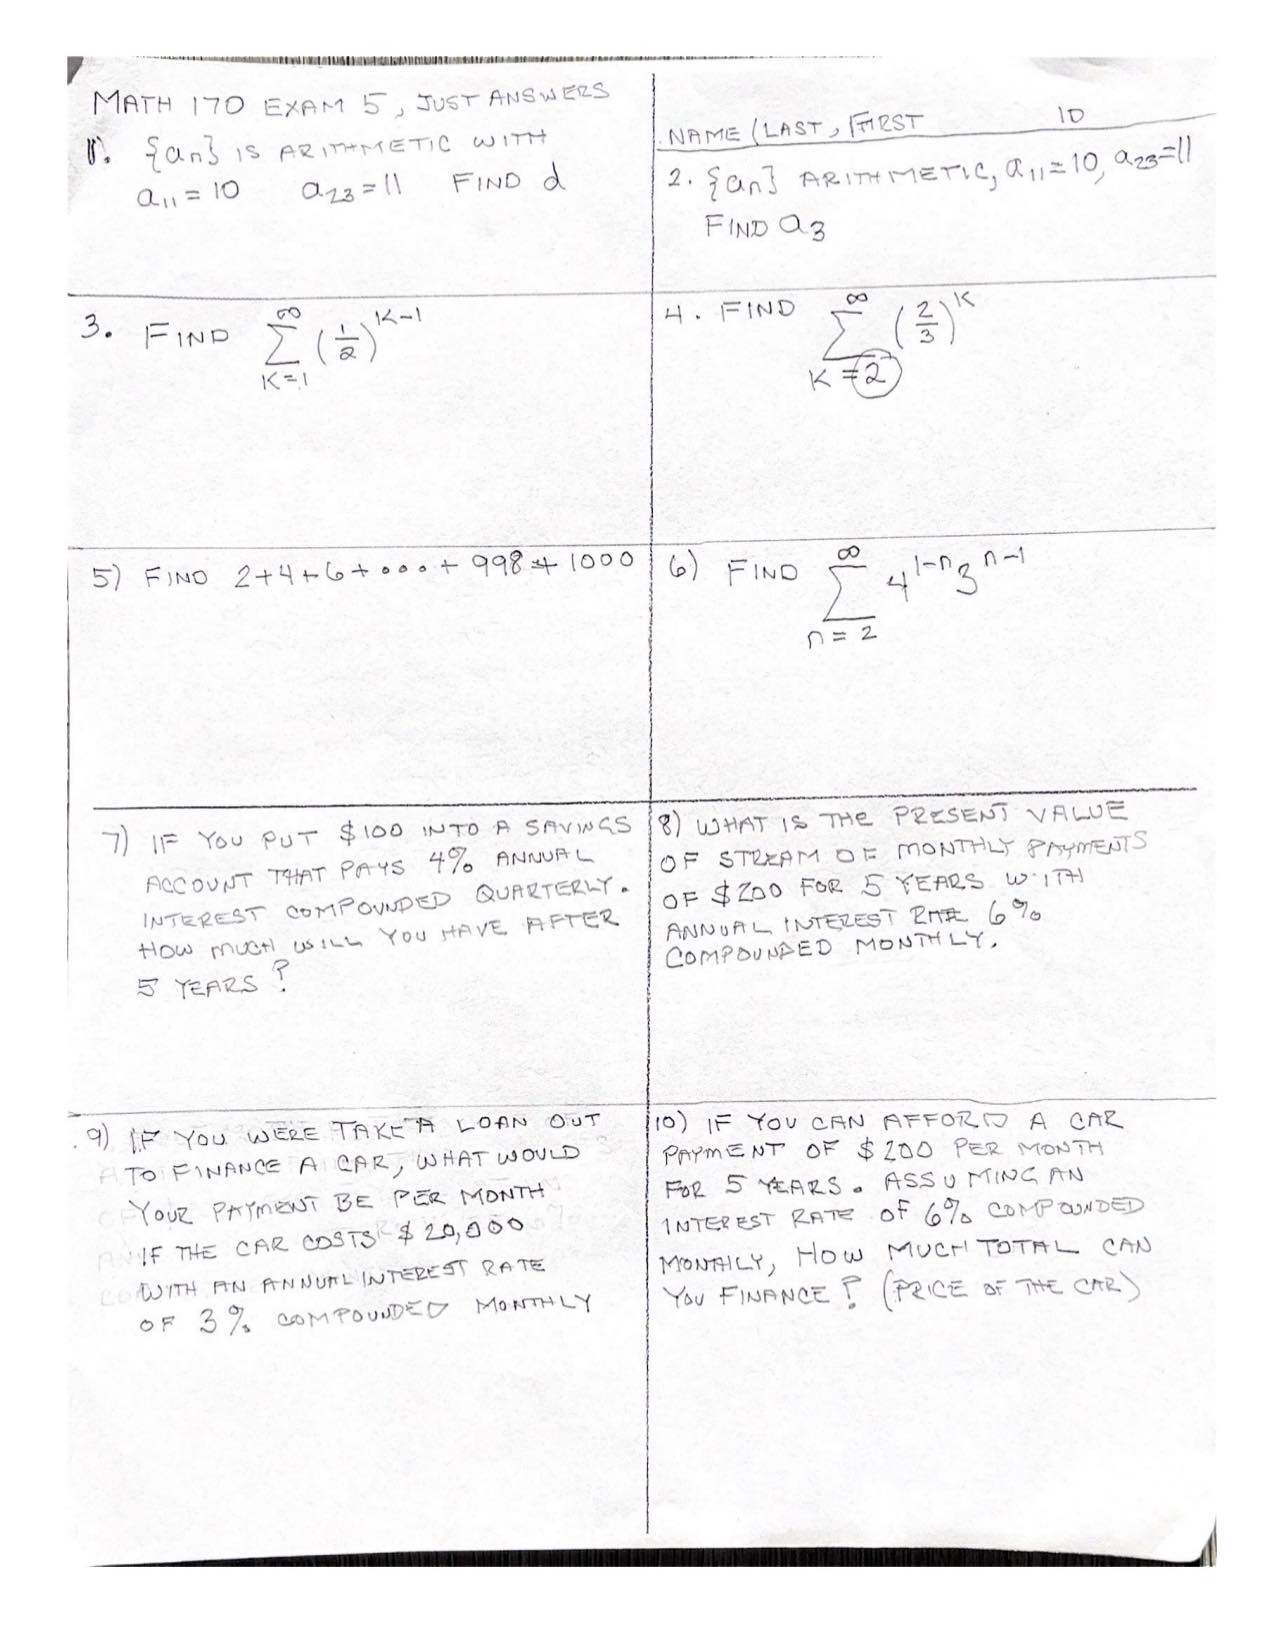 MATH 170 EXAM 5, JUST ANSWERS
NAME (LAST, FIRST ID
1. {an} IS ARITHMETIC WITH
a₁₁ = 10 a₂₃ = 11 FIND d
2. {an} ARITHMETIC, a₁₁ = 10, a₂₃ = 11
FIND a₃
3. FIND ∞ ∑ K=1 (1/2)^(K-1)
4. FIND ∞ ∑ K=2 (2/3)^K
5) FIND 2+4+6+...+998+1000
6) FIND ∞ ∑ n=2 4^(1-n) 3^(n-1)
7) IF YOU PUT $100 INTO A SAVINGS
ACCOUNT THAT PAYS 4% ANNUAL
INTEREST COMPOUNDED QUARTERLY.
HOW MUCH WILL YOU HAVE AFTER
5 YEARS?
8) WHAT IS THE PRESENT VALUE
OF STREAM OF MONTHLY PAYMENTS
OF $200 FOR 5 YEARS WITH
ANNUAL INTEREST RATE 6%
COMPOUNDED MONTHLY.
9) IF YOU WERE TAKE A LOAN OUT
TO FINANCE A CAR, WHAT WOULD
YOUR PAYMENT BE PER MONTH
IF THE CAR COSTS $20,000
WITH AN ANNUAL INTEREST RATE
OF 3% COMPOUNDED MONTHLY
10) IF YOU CAN AFFORD A CAR
PAYMENT OF $200 PER MONTH
FOR 5 YEARS. ASSUMING AN
INTEREST RATE OF 6% COMPOUNDED
MONTHLY, HOW MUCH TOTAL CAN
YOU FINANCE? (PRICE OF THE CAR)